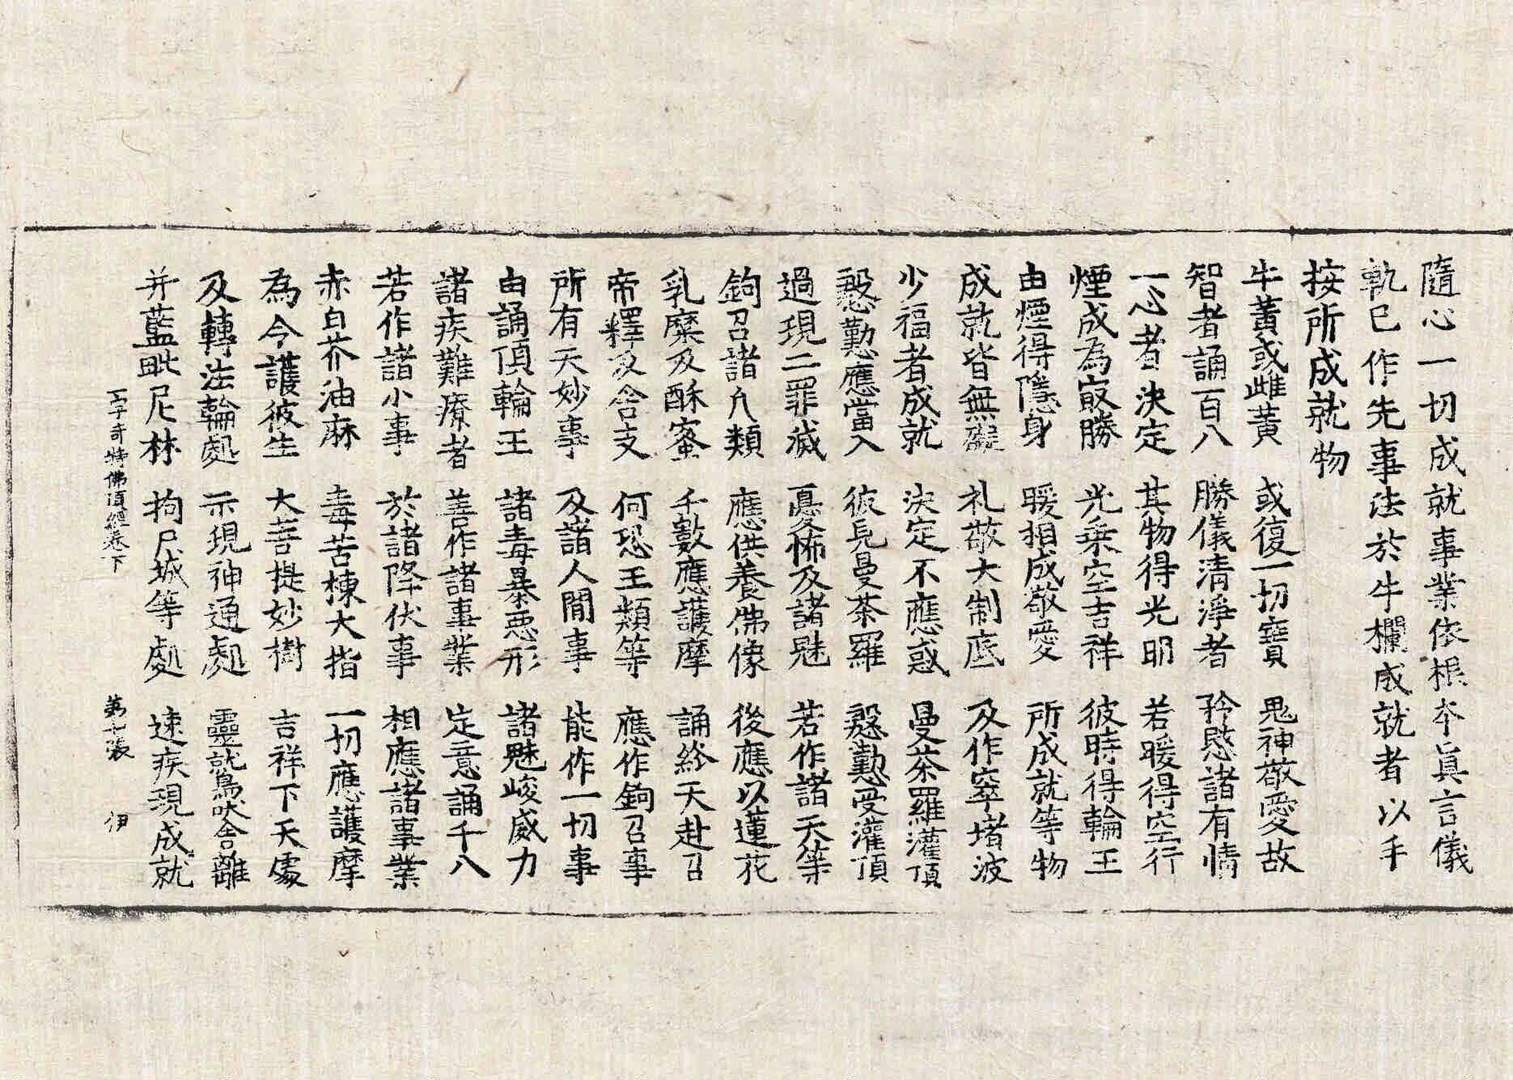 隨心一切成就事業依根本眞言儀
軌已作先事法於牛欄成就者以手
按所成就物
牛黃或雌黃 或復一切寶 鬼神敬愛故
智者誦百八 勝儀清淨者 矜愍諸有情
一心者決定 其物得光明 若暖得空行
煙成為㝡勝 光乗空吉祥 彼時得輪王
由煙得隱身 暖相成敬愛 所成就等物
成就皆無礙 礼敬大制底 及作窣堵波
少福者成就 決定不應惑 曼茶羅灌頂
慇懃應當入 彼見曼茶羅 慇懃受灌頂
過現二罪滅 憂怖及諸魅 若作諸天等
鉤召諸凢類 應供養佛像 後應以蓮花
乳糜及酥蜜 千數應護摩 誦終天赴召
帝釋及舍支 何恐王類等 應作鉤召事
所有天妙事 及諸人間事 能作一切事
由誦頂輪王 諸毒暴惡形 諸魅峻威力
諸疾難療者 善作諸事業 定意誦千八
若作諸小事 於諸降伏事 相應諸事業
赤白芥油麻 毒苦棟大指 一切應護摩
為令護彼生 大菩提妙樹 吉祥下天處
及轉法輪處 示現神通處 靈鷲吠舍離
并藍毗尼林 拘尸城等處 速疾現成就
一字奇特佛頂經卷下 第七張 伊